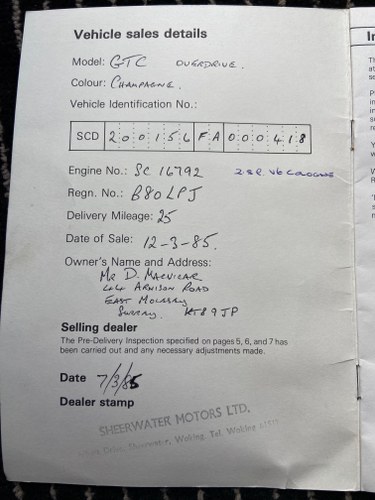 Vehicle sales details
Model: GTC OVERDRIVE.
Colour: CHAMPAGNE.
Vehicle Identification No.:
SCD 200156FA000418
Engine No.: SC 16792 2.8L V6 COLOGNE
Regn. No.: B80LPJ
Delivery Mileage: 25
Date of Sale: 12-3-85.
Owner's Name and Address:
MR D. MACVICAR
ARNISON ROAD
EAST MOLESEY
SURREY. KT8 9JP
Selling dealer
The Pre-Delivery Inspection specified on pages 5, 6, and 7 has
been carried out and any necessary adjustments made.
Date 7/3/85
Dealer stamp
SHEERWATER MOTORS LTD.
Drive, Sheerwater, Woking. Tel. Woking